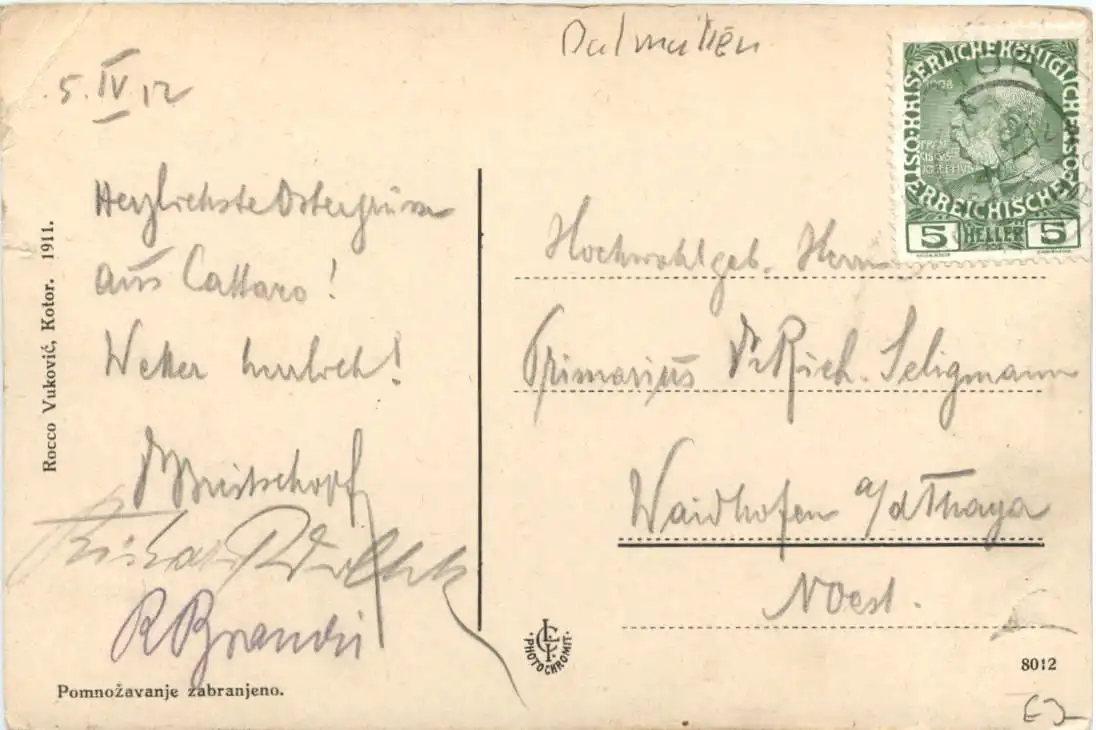 Dalmatien
5. IV 12
Herzlichste Ostergrüsse
aus Cattaro!
Wetter herrlich!
R Brandi
Rocco Vuković, Kotor. 1911.
Pomnožavanje zabranjeno.
KAISERLICHE KÖNIGLICHE
ÖSTERREICHISCHE POST
1908
FRANCISCUS JOSEPHUS
5 HELLER 5
Hochwohlgeb. Herrn
Primarius Dr Rich. Seligmann
Waidhofen a/d Thaya
NOest.
PHOTOCHROMIT.
8012